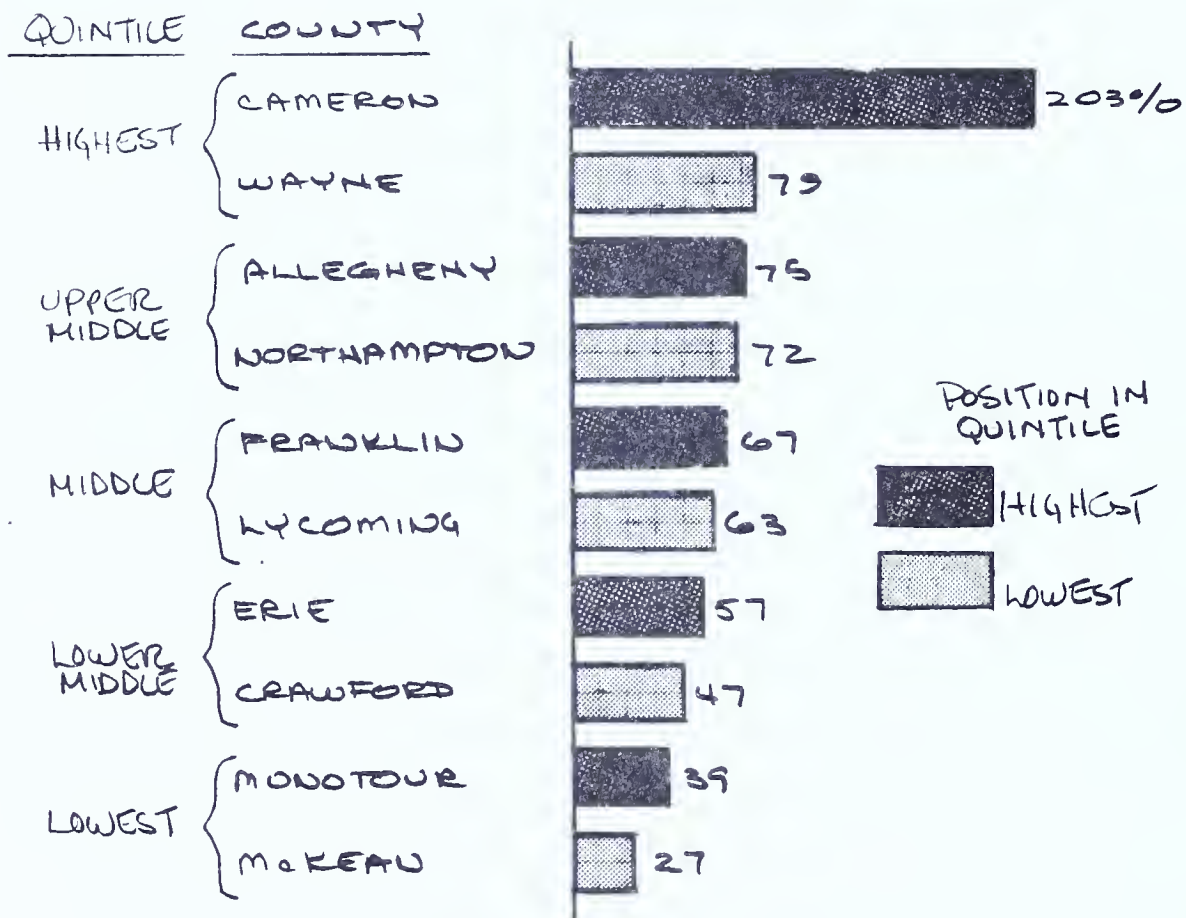 QUINTILE COUNTY
HIGHEST
CAMERON 203%
WAYNE 79
UPPER
MIDDLE
ALLEGHENY 75
NORTHAMPTON 72
MIDDLE
FRANKLIN 67
LYCOMING 63
LOWER
MIDDLE
ERIE 57
CRAWFORD 47
LOWEST
MONOTOUR 39
McKEAN 27
POSITION IN
QUINTILE
HIGHEST
LOWEST